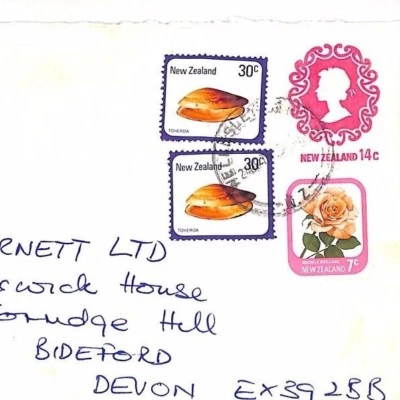 New Zealand 30c
TOHEROA
New Zealand 30c
TOHEROA
NEW ZEALAND 14c
NEW ZEALAND 7c
RNETT LTD
swick House
ornudge Hill
BIDEFORD
DEVON EX39 2BB
N.Z.